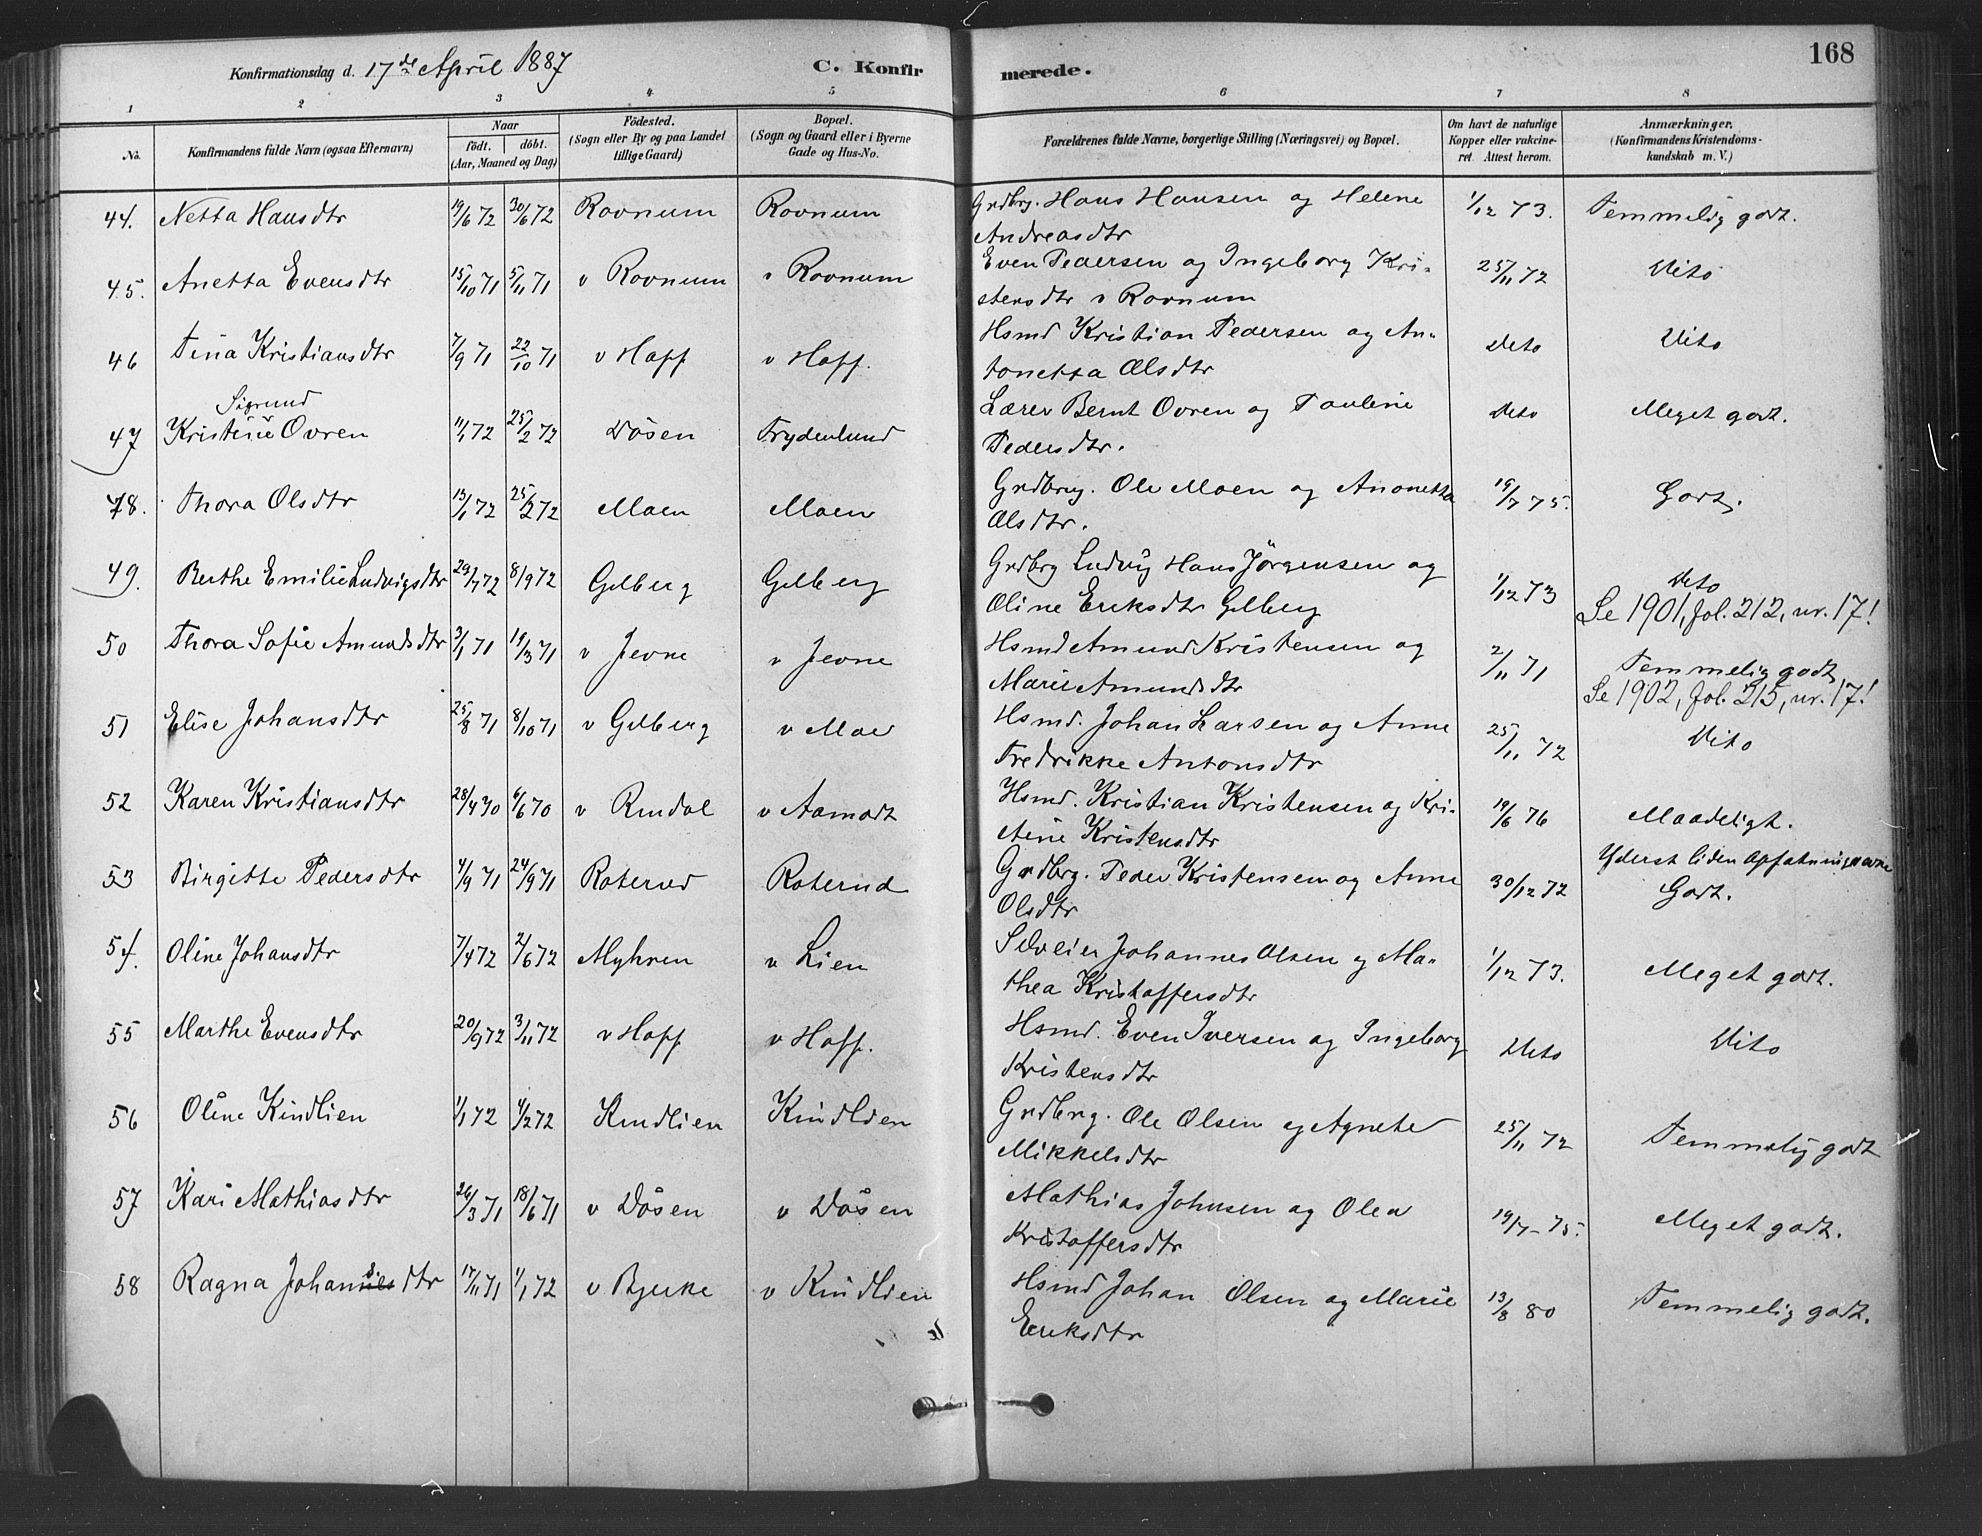 Konfirmationsdag d. 17de April 1887
C. Konfir
merede.
168
1 2 3 4 5 6 7 8
No.
Konfirmandens fulde Navn (ogsaa Efternavn)
Naar
födt. döbt.
(Aar, Maaned og Dag)
Födested.
(Sogn eller By og paa Landet
tillige Gaard)
Bopæl.
(Sogn og Gaard eller i Byerne
Gade og Hus-No.
Forældrenes fulde Navne, borgerlige Stilling (Næringsvei) og Bopæl.
Om havt de naturlige
Kopper eller vakcine-
ret Attest herom.
Anmærkninger.
(Konfirmandens Kristendoms-
kundskab m. V.)
44. Netta Hansdtr 19/6 72 30/6 72 Rovnum Rovnum Grdbrg. Hans Hansen og Helene 1/12 73. Temmelig godt.
Andreasdtr
45. Anetta Evensdtr 15/10 71 5/11 71 v Rovnum v Rovnum Even Pedersen og Ingeborg Kri- 25/11 72 Dito
stensdtr v Rovnum
46 Tina Kristiansdtr 7/9 71 22/10 71 v Hoff v Hoff. Hsmd Kristian Pedersen og An- Deto Dito
tonetta Olsdtr
Sigrund
47 Kristine Ovren 11/1 72 25/2 72 Dösen Frydenlund Lærer Bernt Ovren og Pauline Deto Meget godt.
Pedersdtr.
48. Thora Olsdtr 13/1 72 25/2 72 Moen Moen Grdbrg. Ole Moen og Anonetta 19/7 75. Godt.
Olsdtr.
49. Berthe Emilie Ludvigsdtr 29/7 72 8/9 72 Gilberg Gilberg Grdbrg Ludvig Hans Jörgensen og 1/12 73 Deto
Oline Eriksdtr Gilberg Se 1901, fol. 212, nr. 17!
50 Thora Sofie Amundsdtr 3/1 71 19/3 71 v Jevne v Jevne Hsmd Amund Kristensen og 2/11 71 Temmelig godt
Marie Amundsdtr Se 1902, fol. 215, nr. 17!
51 Elise Johansdtr 25/8 71 8/10 71 v Gilberg v Moe Hsmd. Johan Larsen og Anne 25/11 72 Dito
Fredrikke Antonsdtr
52 Karen Kristiansdtr 28/4 70 6/6 70 v Rindal v Aamodt Hsmd. Kristian Kristensen og Kri- 19/6 76 Maadeligt.
stine Kristensdtr Yderst liden Opfatningsevne
53 Birgitte Pedersdtr 4/9 71 24/9 71 Roterud Roterud Grdbrg. Peder Kristensen og Anne 30/12 72 Godt.
Olsdtr
54. Oline Johansdtr 7/4 72 2/6 72 Myhren v Lien Selveier Johannes Olsen og Ma- 1/12 73. Meget godt.
thea Kristoffersdtr
55 Marthe Evensdtr 20/9 72 3/11 72 v Hoff v Hoff. Hsmd. Even Iversen og Ingeborg Dito Dito
Kristensdtr
56 Oline Kindlien 1/1 72 4/2 72 Kindlien Kindlien Grdbrg. Ole Olsen og Agnete 25/11 72 Temmelig godt
Mikkelsdtr
57 Kari Mathiasdtr 26/3 71 18/6 71 v Dösen v Dösen Mathias Johnsen og Olea 19/7 - 75. Meget godt.
Kristoffersdtr
58 Ragna Johansdtr 17/11 71 1/1 72 v Bjerke v Kindlien Hsmd Johan Olsen og Marie 13/8 80 Temmelig godt.
Eriksdtr